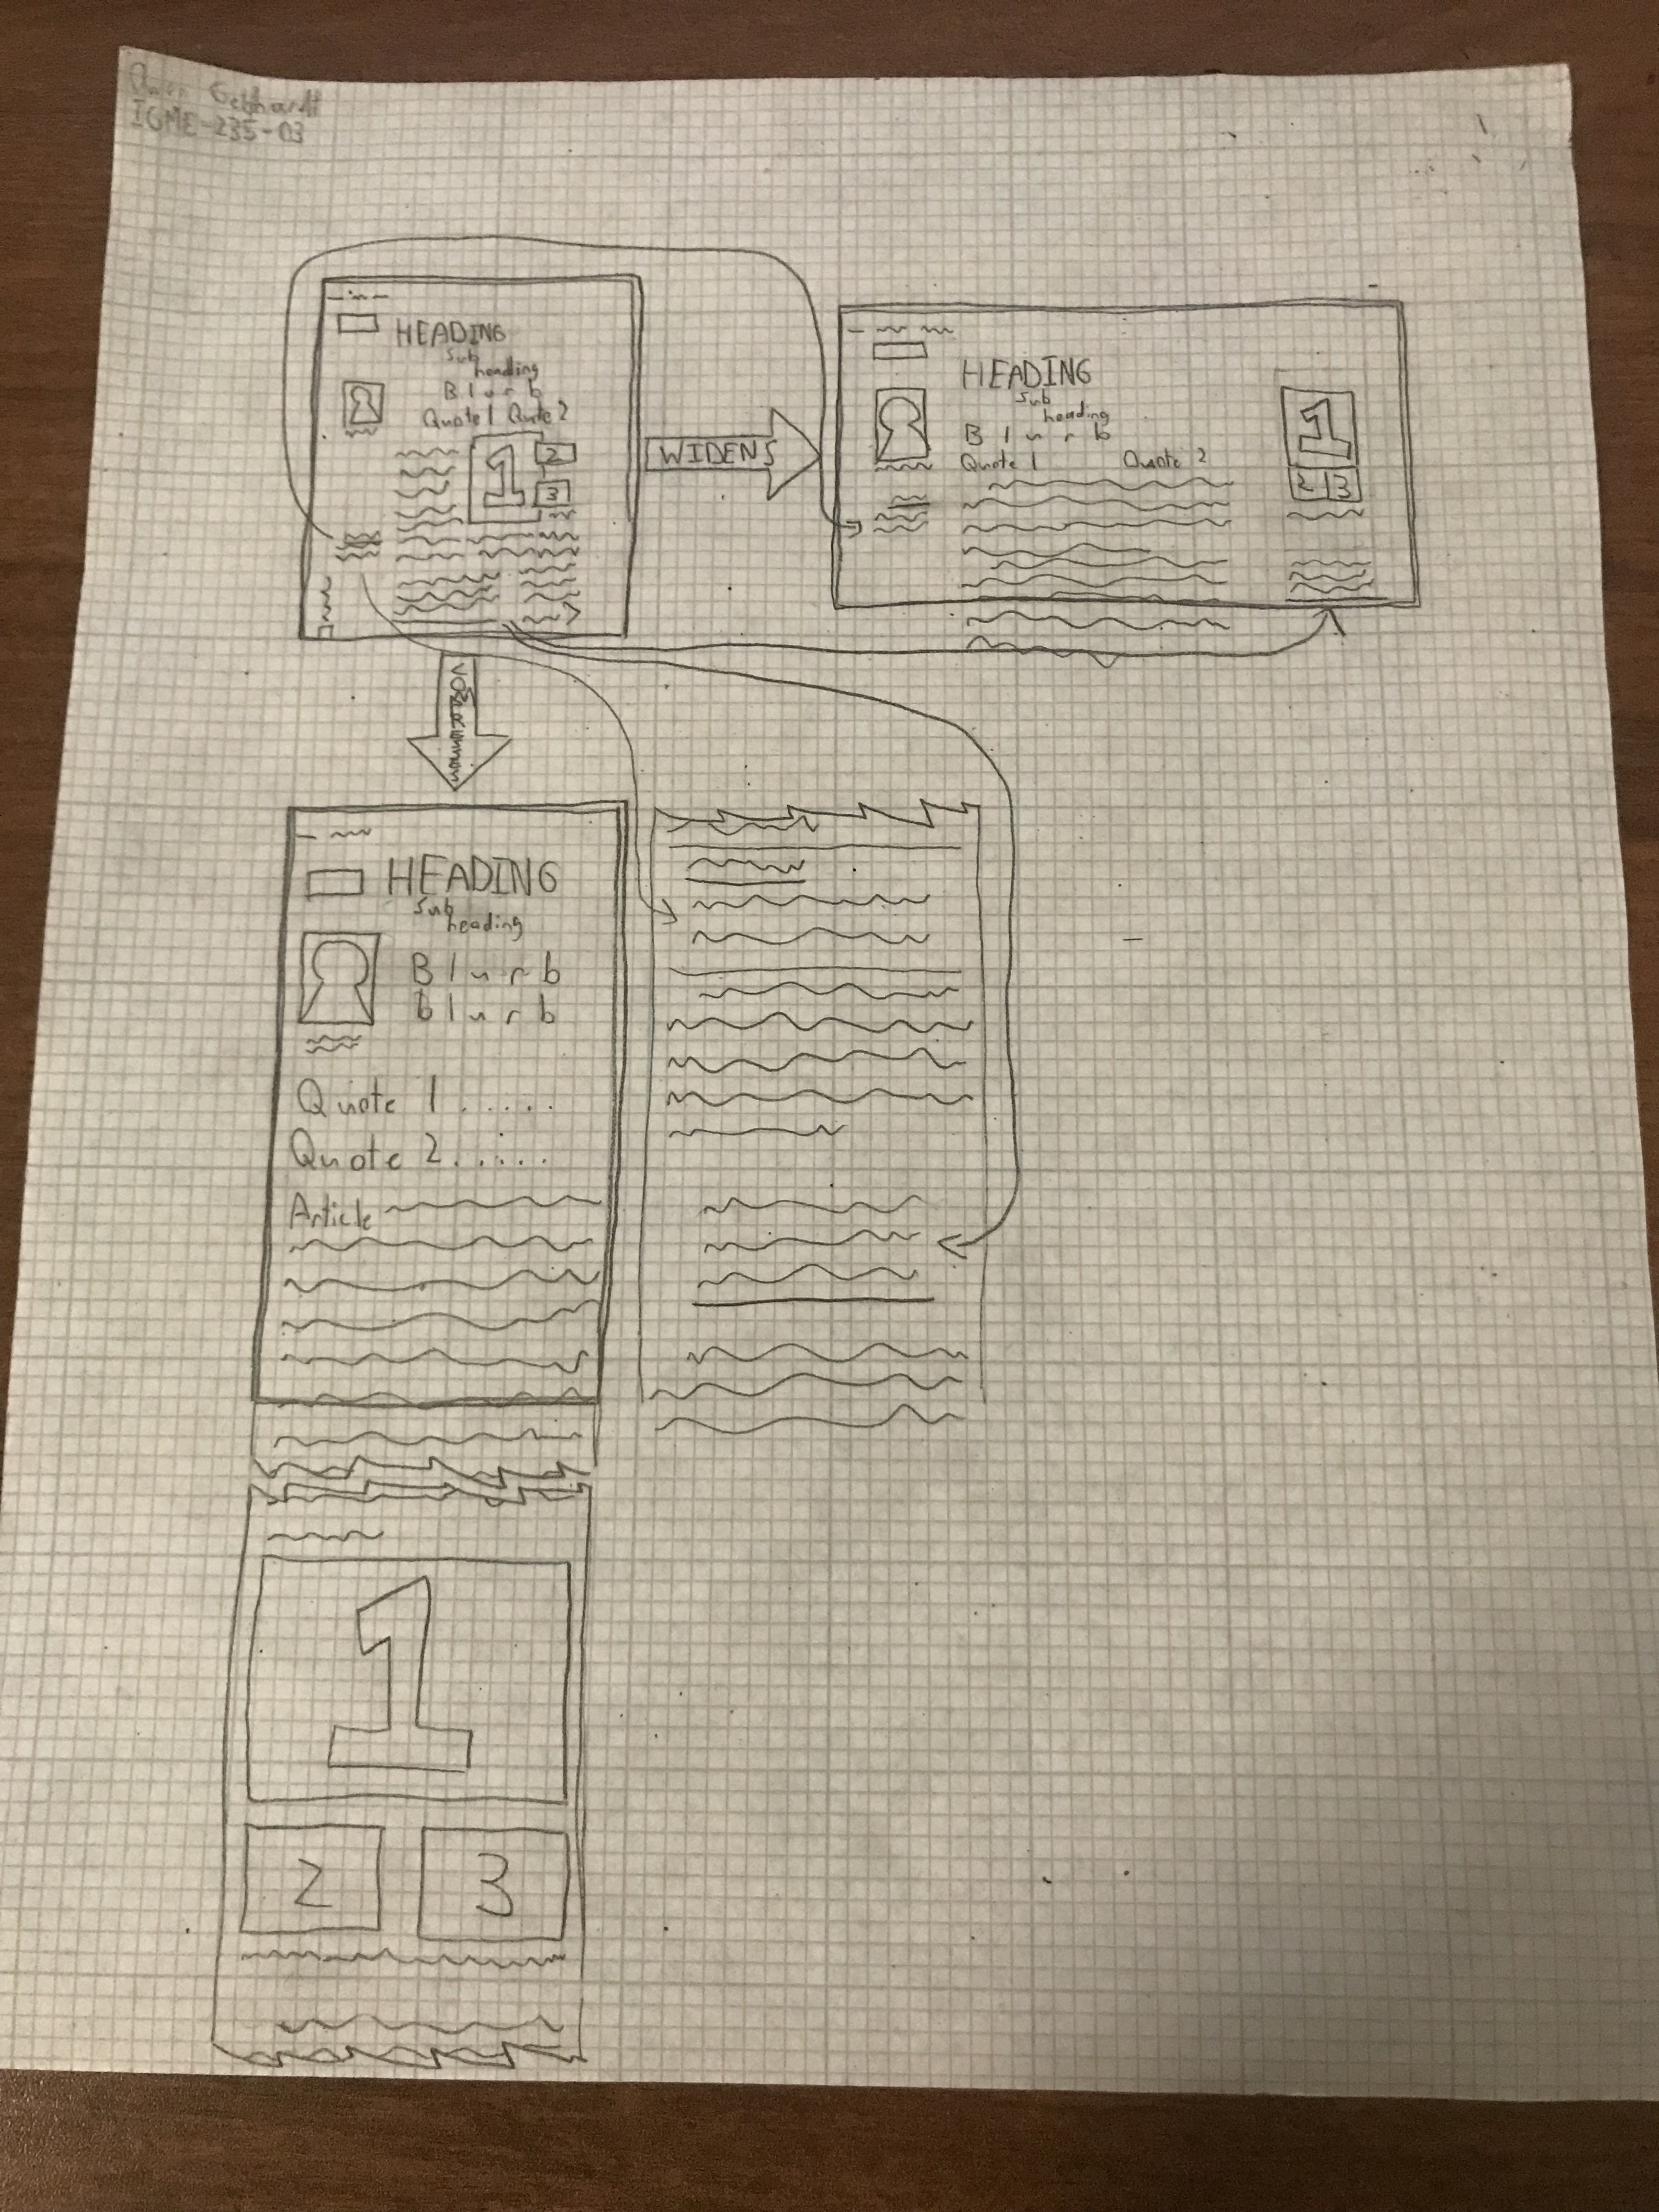 Gebhardt
IGME-235-03
HEADING
Sub
heading
Blurb
Quote 1 Quote 2
1
2
3
WIDENS
HEADING
Sub
heading
Blurb
Quote 1 Quote 2
1
2 3
HEADING
Sub
heading
Blurb
blurb
Quote 1 . . . . .
Quote 2 . . . . .
Article
1
2 3